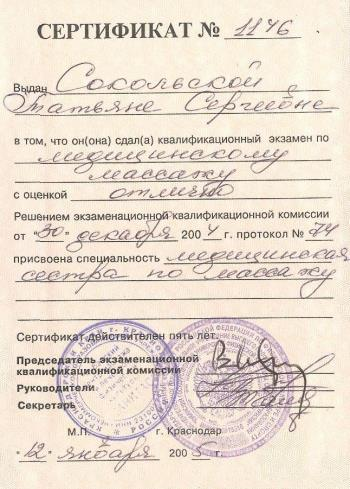 СЕРТИФИКАТ № 1176
Выдан Сокольской
Татьяне Сергеевне
в том, что он(она) сдал(а) квалификационный экзамен по
медицинскому
массажу
с оценкой отлично
Решением экзаменационной квалификационной комиссии
от "30" декабря 2004 г. протокол № 74
присвоена специальность медицинская
сестра по массажу
Сертификат действителен пять лет.
Председатель экзаменационной
квалификационной комиссии
Руководитель
Секретарь
М.П. г. Краснодар
"12" января 2005 г.